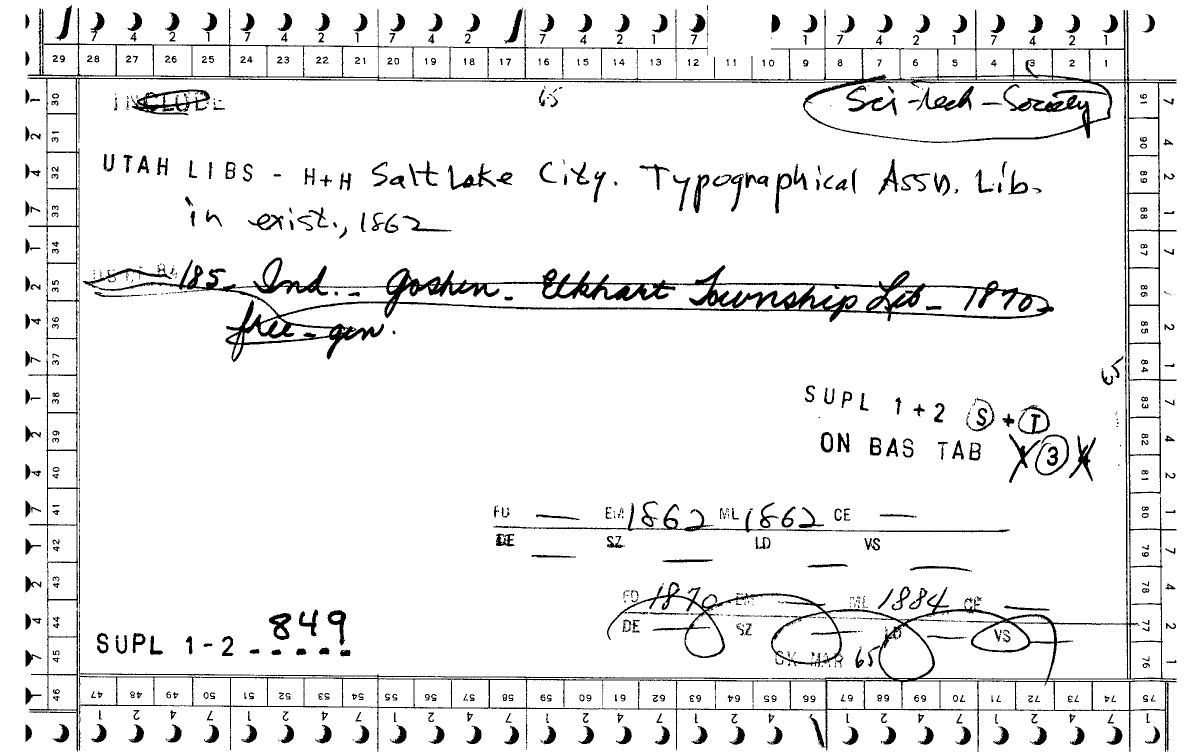 7 4 2 1 7 4 2 1 7 4 2 7 4 2 1 7 1 7 4 2 1 7 4 2 1
29 28 27 26 25 24 23 22 21 20 19 18 17 16 15 14 13 12 11 10 9 8 7 6 5 4 3 2 1
INCLUDE 65 Sci-tech-Society
UTAH LIBS - H+H Salt Lake City. Typographical Assn. Lib.
in exist., 1862
185- Ind. - Goshen - Elkhart Township Lib - 1870-
free - gen.
65
SUPL 1+2 S + T
ON BAS TAB 3
FD — EM 1862 ML 1862 CE —
DE SZ LD VS
FD 1870 EM — ML 1884 CE —
DE — SZ — LD — VS —
CK MAR 65
SUPL 1-2 849
30 31 32 33 34 35 36 37 38 39 40 41 42 43 44 45 46
91 90 89 88 87 86 85 84 83 82 81 80 79 78 77 76
47 48 49 50 51 52 53 54 55 56 57 58 59 60 61 62 63 64 65 66 67 68 69 70 71 72 73 74 75
1 2 4 7 1 2 4 7 1 2 4 7 1 2 4 7 1 2 4 7 1 2 4 7 1 2 4 7